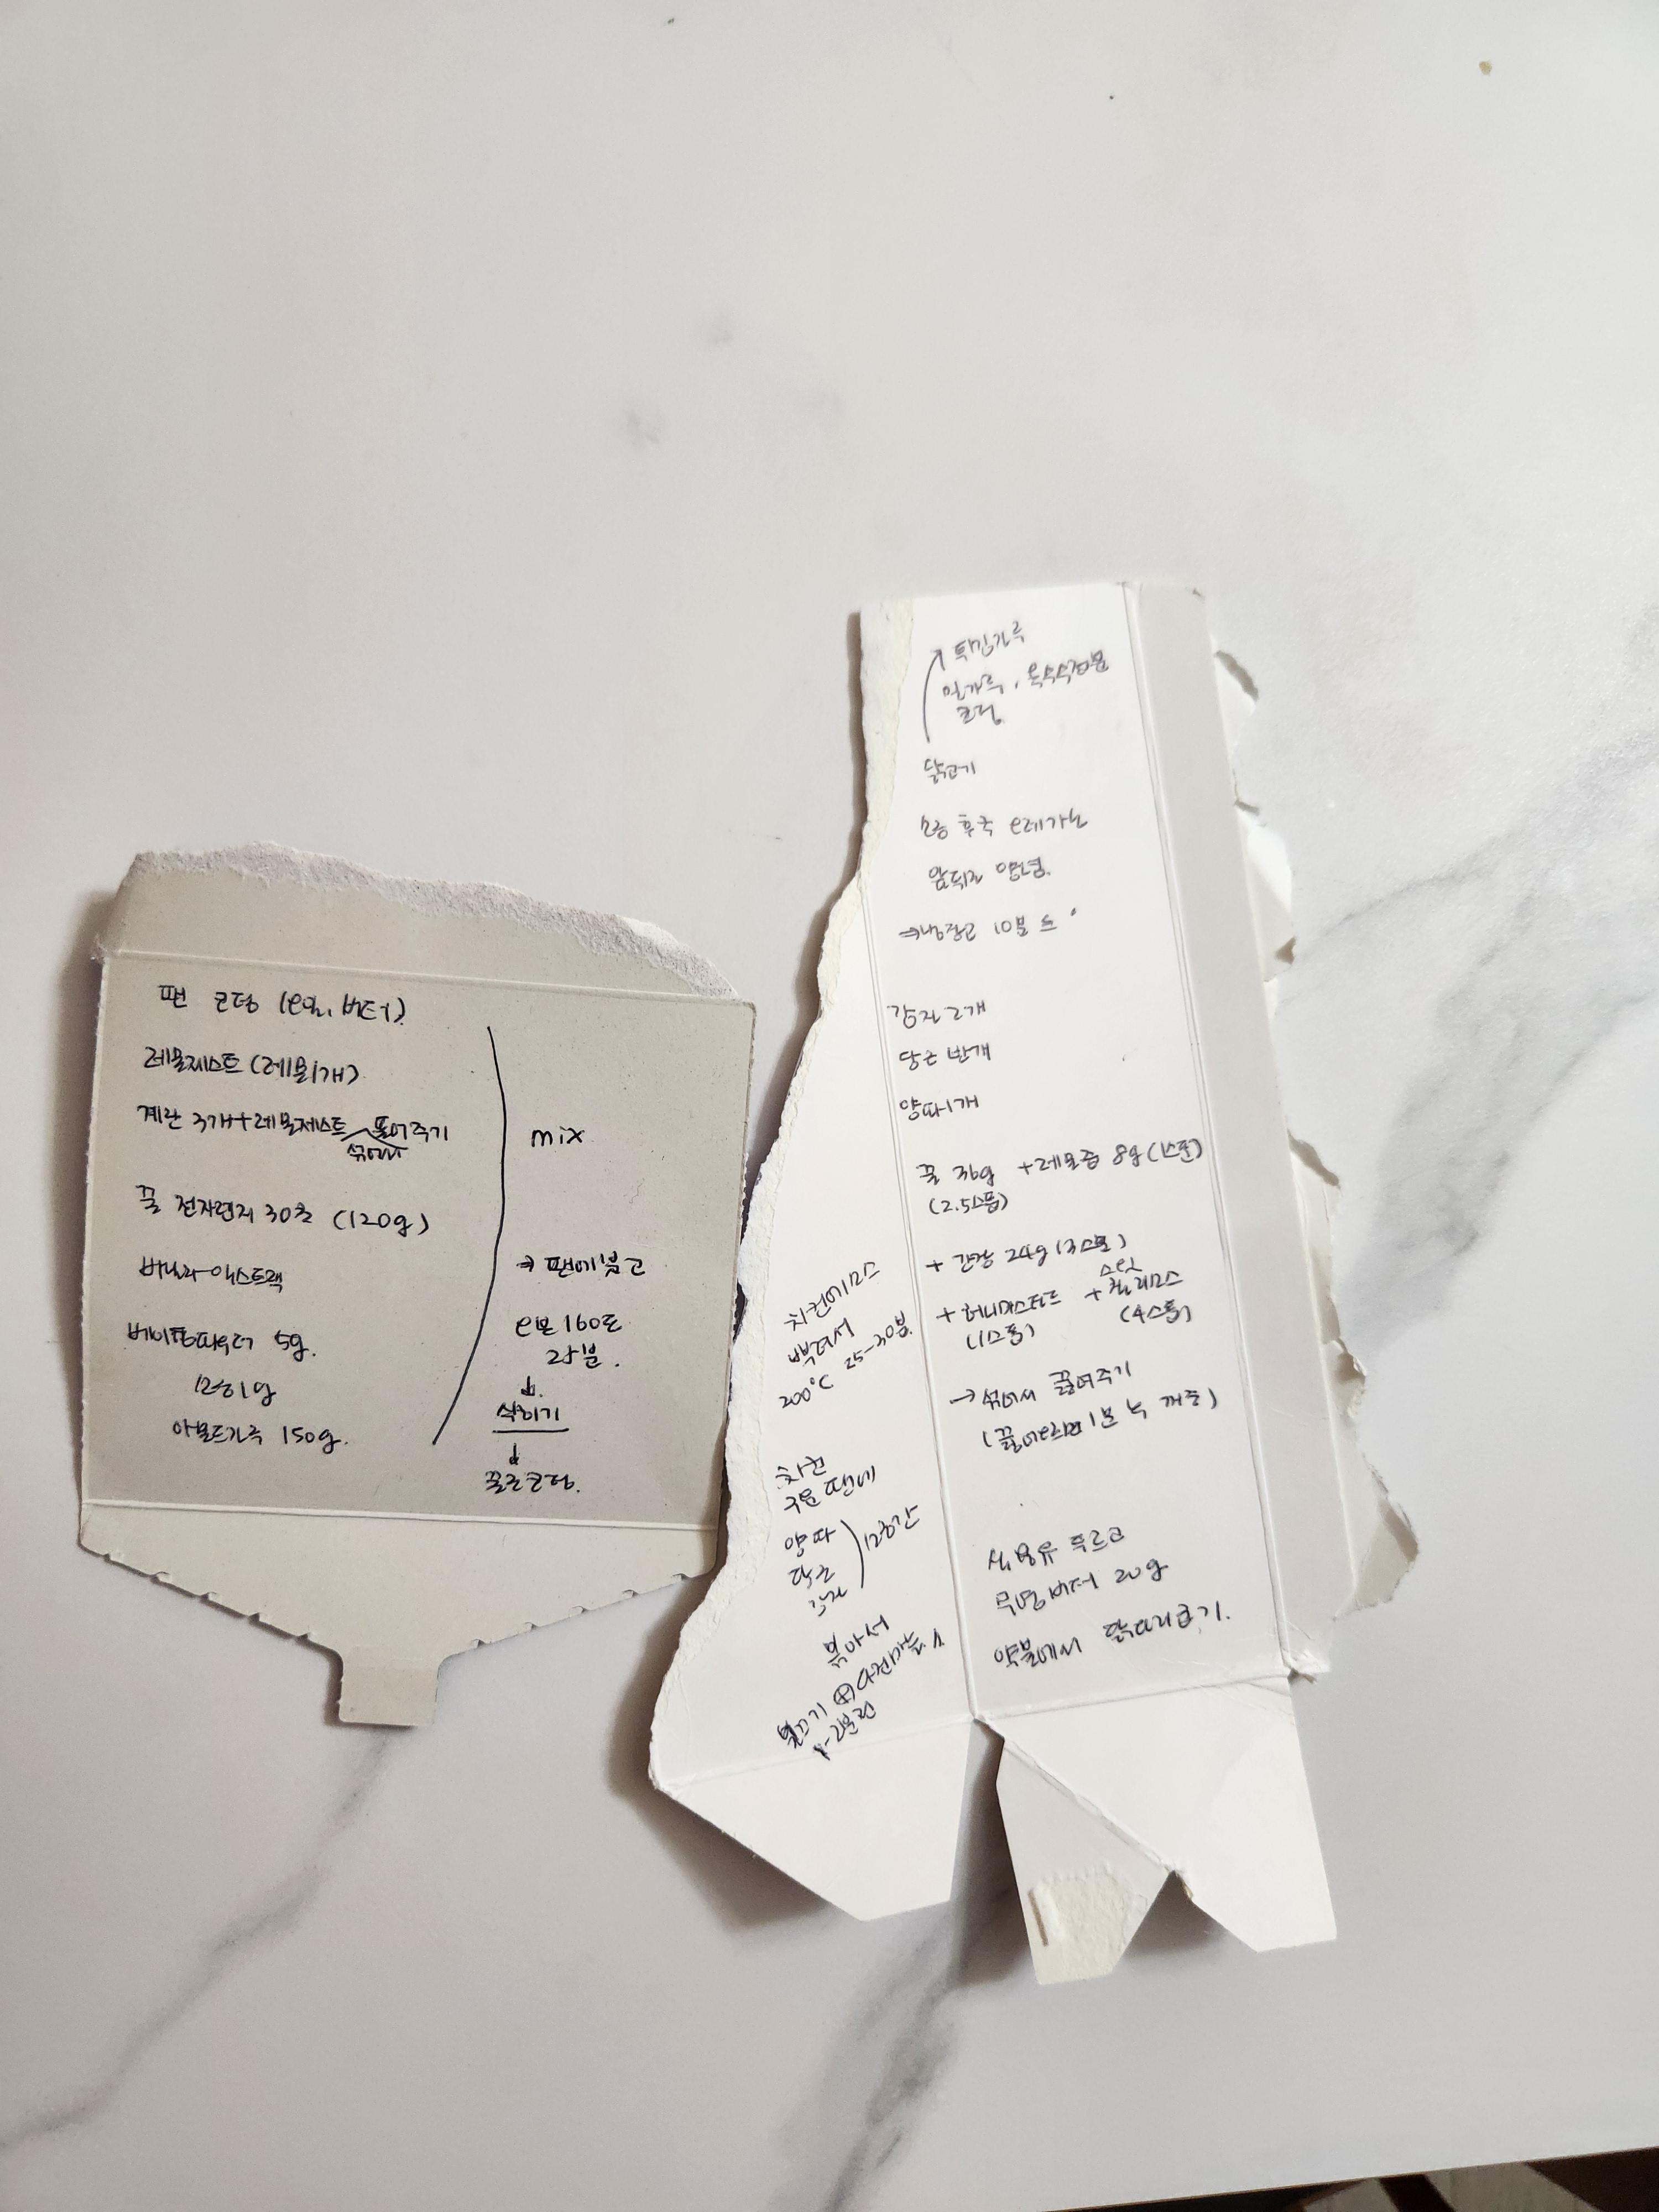 팬 코팅 (오일, 버터)
레몬제스트 (레몬1개)
계란 3개+레몬제스트 풀어주기
섞어서
꿀 전자렌지 30초 (120g)
바닐라익스트랙
베이킹파우더 5g.
소금1g
아몬드가루 150g.
mix
→ 팬에 붓고
오븐 160도
25분.
↓
식히기
↓
꿀로코팅.
튀김가루
밀가루, 옥수수전분
코팅
닭고기
소금 후추 오레가노
앞뒤로 양념.
→냉장고 10분
감자 2개
당근 반개
양파1개
꿀 36g +레몬즙 8g (1스푼)
(2.5스푼)
+ 간장 24g (3스푼)
스윗
+ 허니머스타드 + 칠리소스
(1스푼) (4스푼)
→ 섞어서 끓여주기
식용유 두르고
무염버터 20g
약불에서 닭다리굽기.
치킨에 소스
뿌려서
200°C 25-30분.
치킨
구운 팬에
양파
당근
감자
소금간
볶아서
불끄기 ⊕ 다진마늘
1-2분전